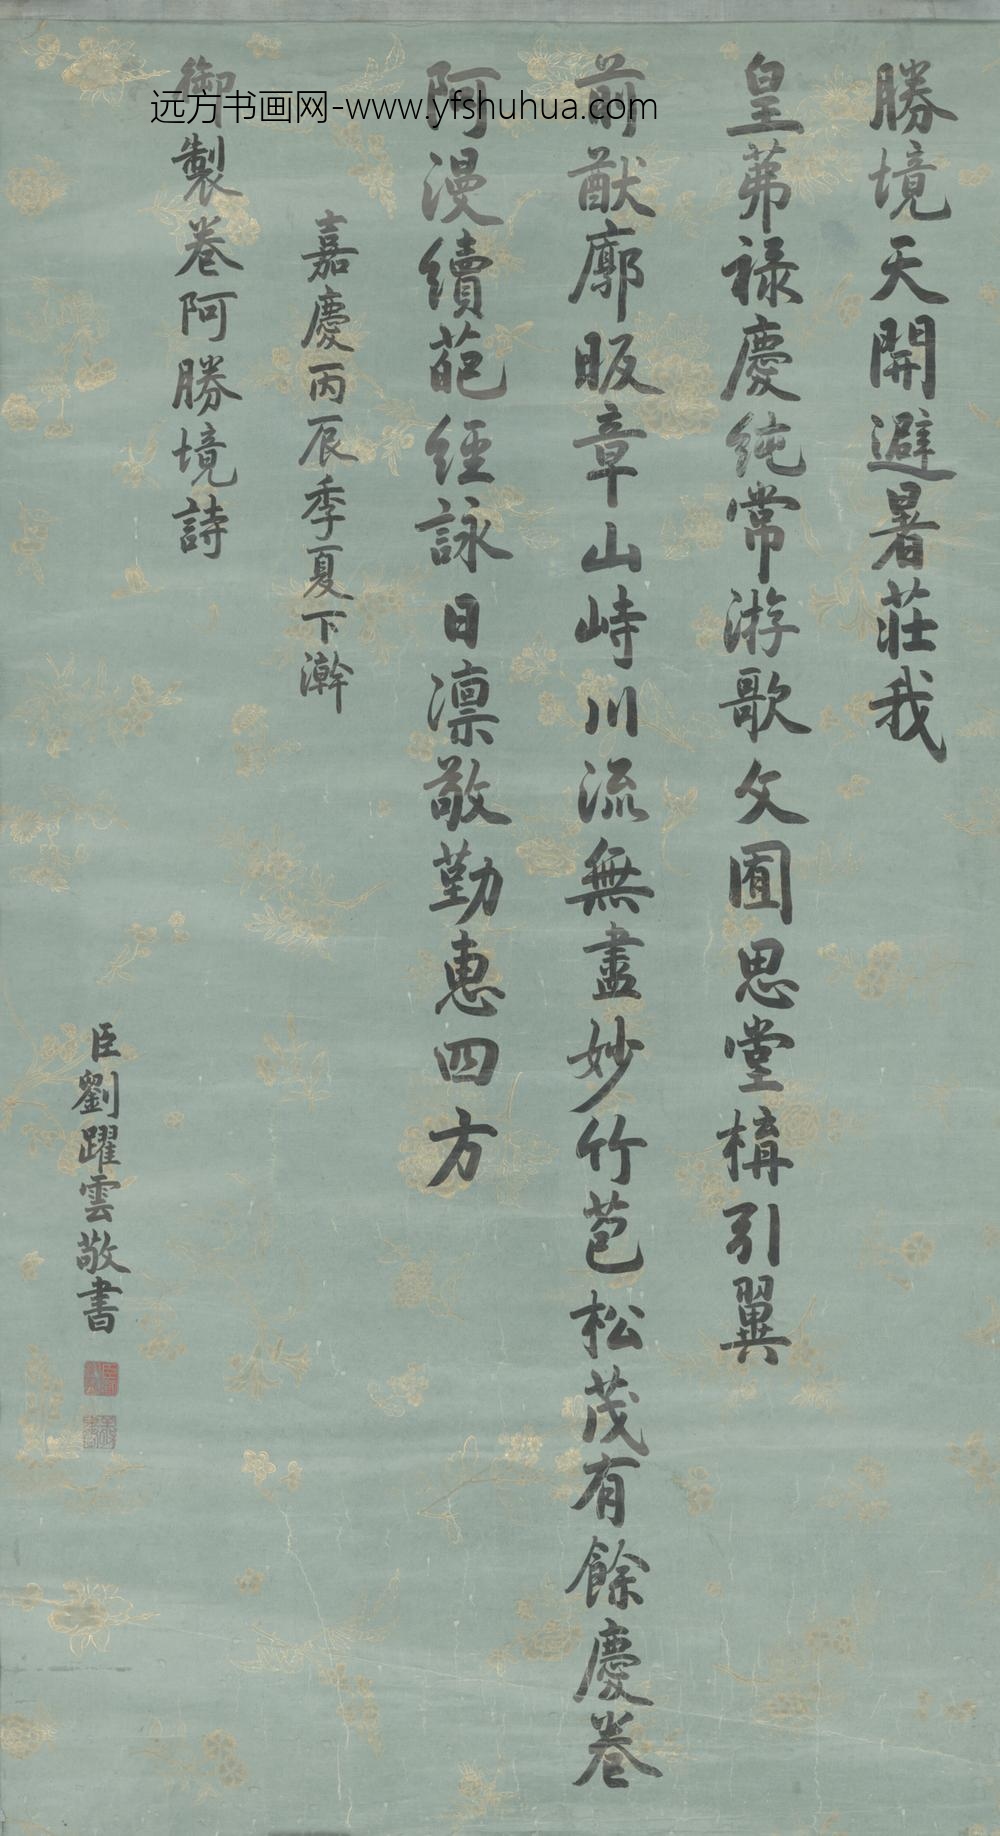 勝境天開避暑莊我
皇茀祿慶純常游歌文囿思堂構引翼
前猷廓昄章山峙川流無盡妙竹苞松茂有餘慶卷
阿漫續葩經詠日凛敬勤惠四方
嘉慶丙辰季夏下澣
御製卷阿勝境詩
臣劉躍雲敬書
远方书画网-www.yfshuhua.com